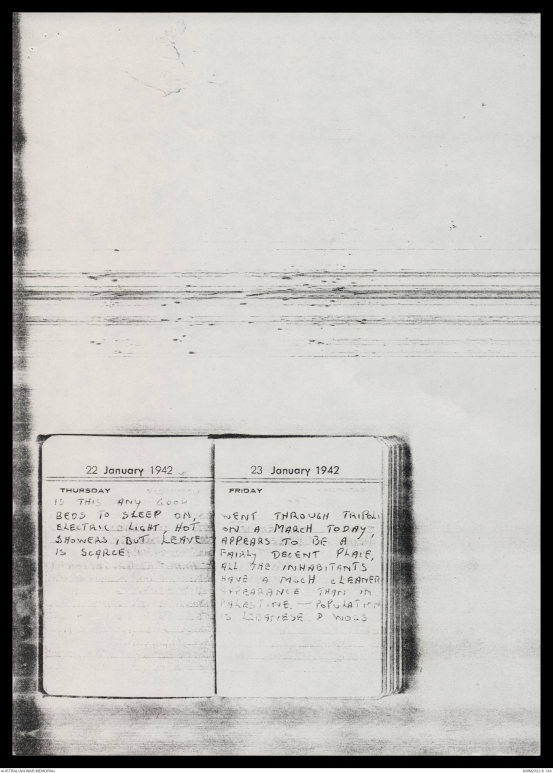 22 January 1942
THURSDAY
IS THIS ANY GOOD
BEDS TO SLEEP ON,
ELECTRIC LIGHT, HOT
SHOWERS, BUT LEAVE
IS SCARCE
23 January 1942
FRIDAY
WENT THROUGH TRIPOLI
ON A MARCH TODAY,
APPEARS TO BE A
FAIRLY DECENT PLACE,
ALL THE INHABITANTS
HAVE A MUCH CLEANER
APPEARANCE THAN IN
PALESTINE. — POPULATION
IS LEBANESE & WOGS
AUSTRALIAN WAR MEMORIAL